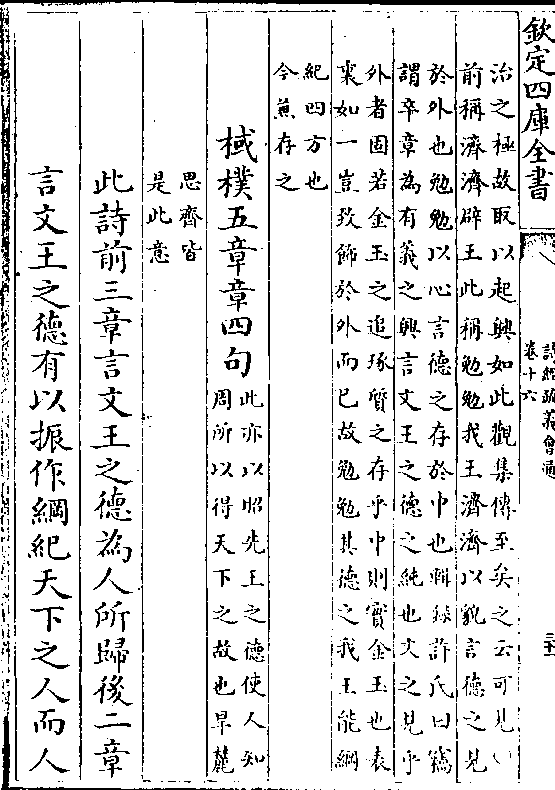 欽定四庫全書
詩經疏義會通
卷十六
治之極故取以起興如此觀集傳至矣之云可見
前稱濟濟辟王此稱勉勉我王濟濟以貌言德之見
於外也勉勉以心言德之存於中也輯録許氏曰竊
謂卒章為有義之興言文王之德之純也文之見乎
外者固若金玉之追琢質之存乎中則實金玉也表
裏如一豈致飾於外而已故勉勉其德之我王能綱
紀四方也
今兼存之
棫樸五章章四句
此亦以昭先王之德使人知
周所以得天下之故也旱麓
思齊皆
是此意
此詩前三章言文王之德為人所歸後二章
言文王之德有以振作綱紀天下之人而人